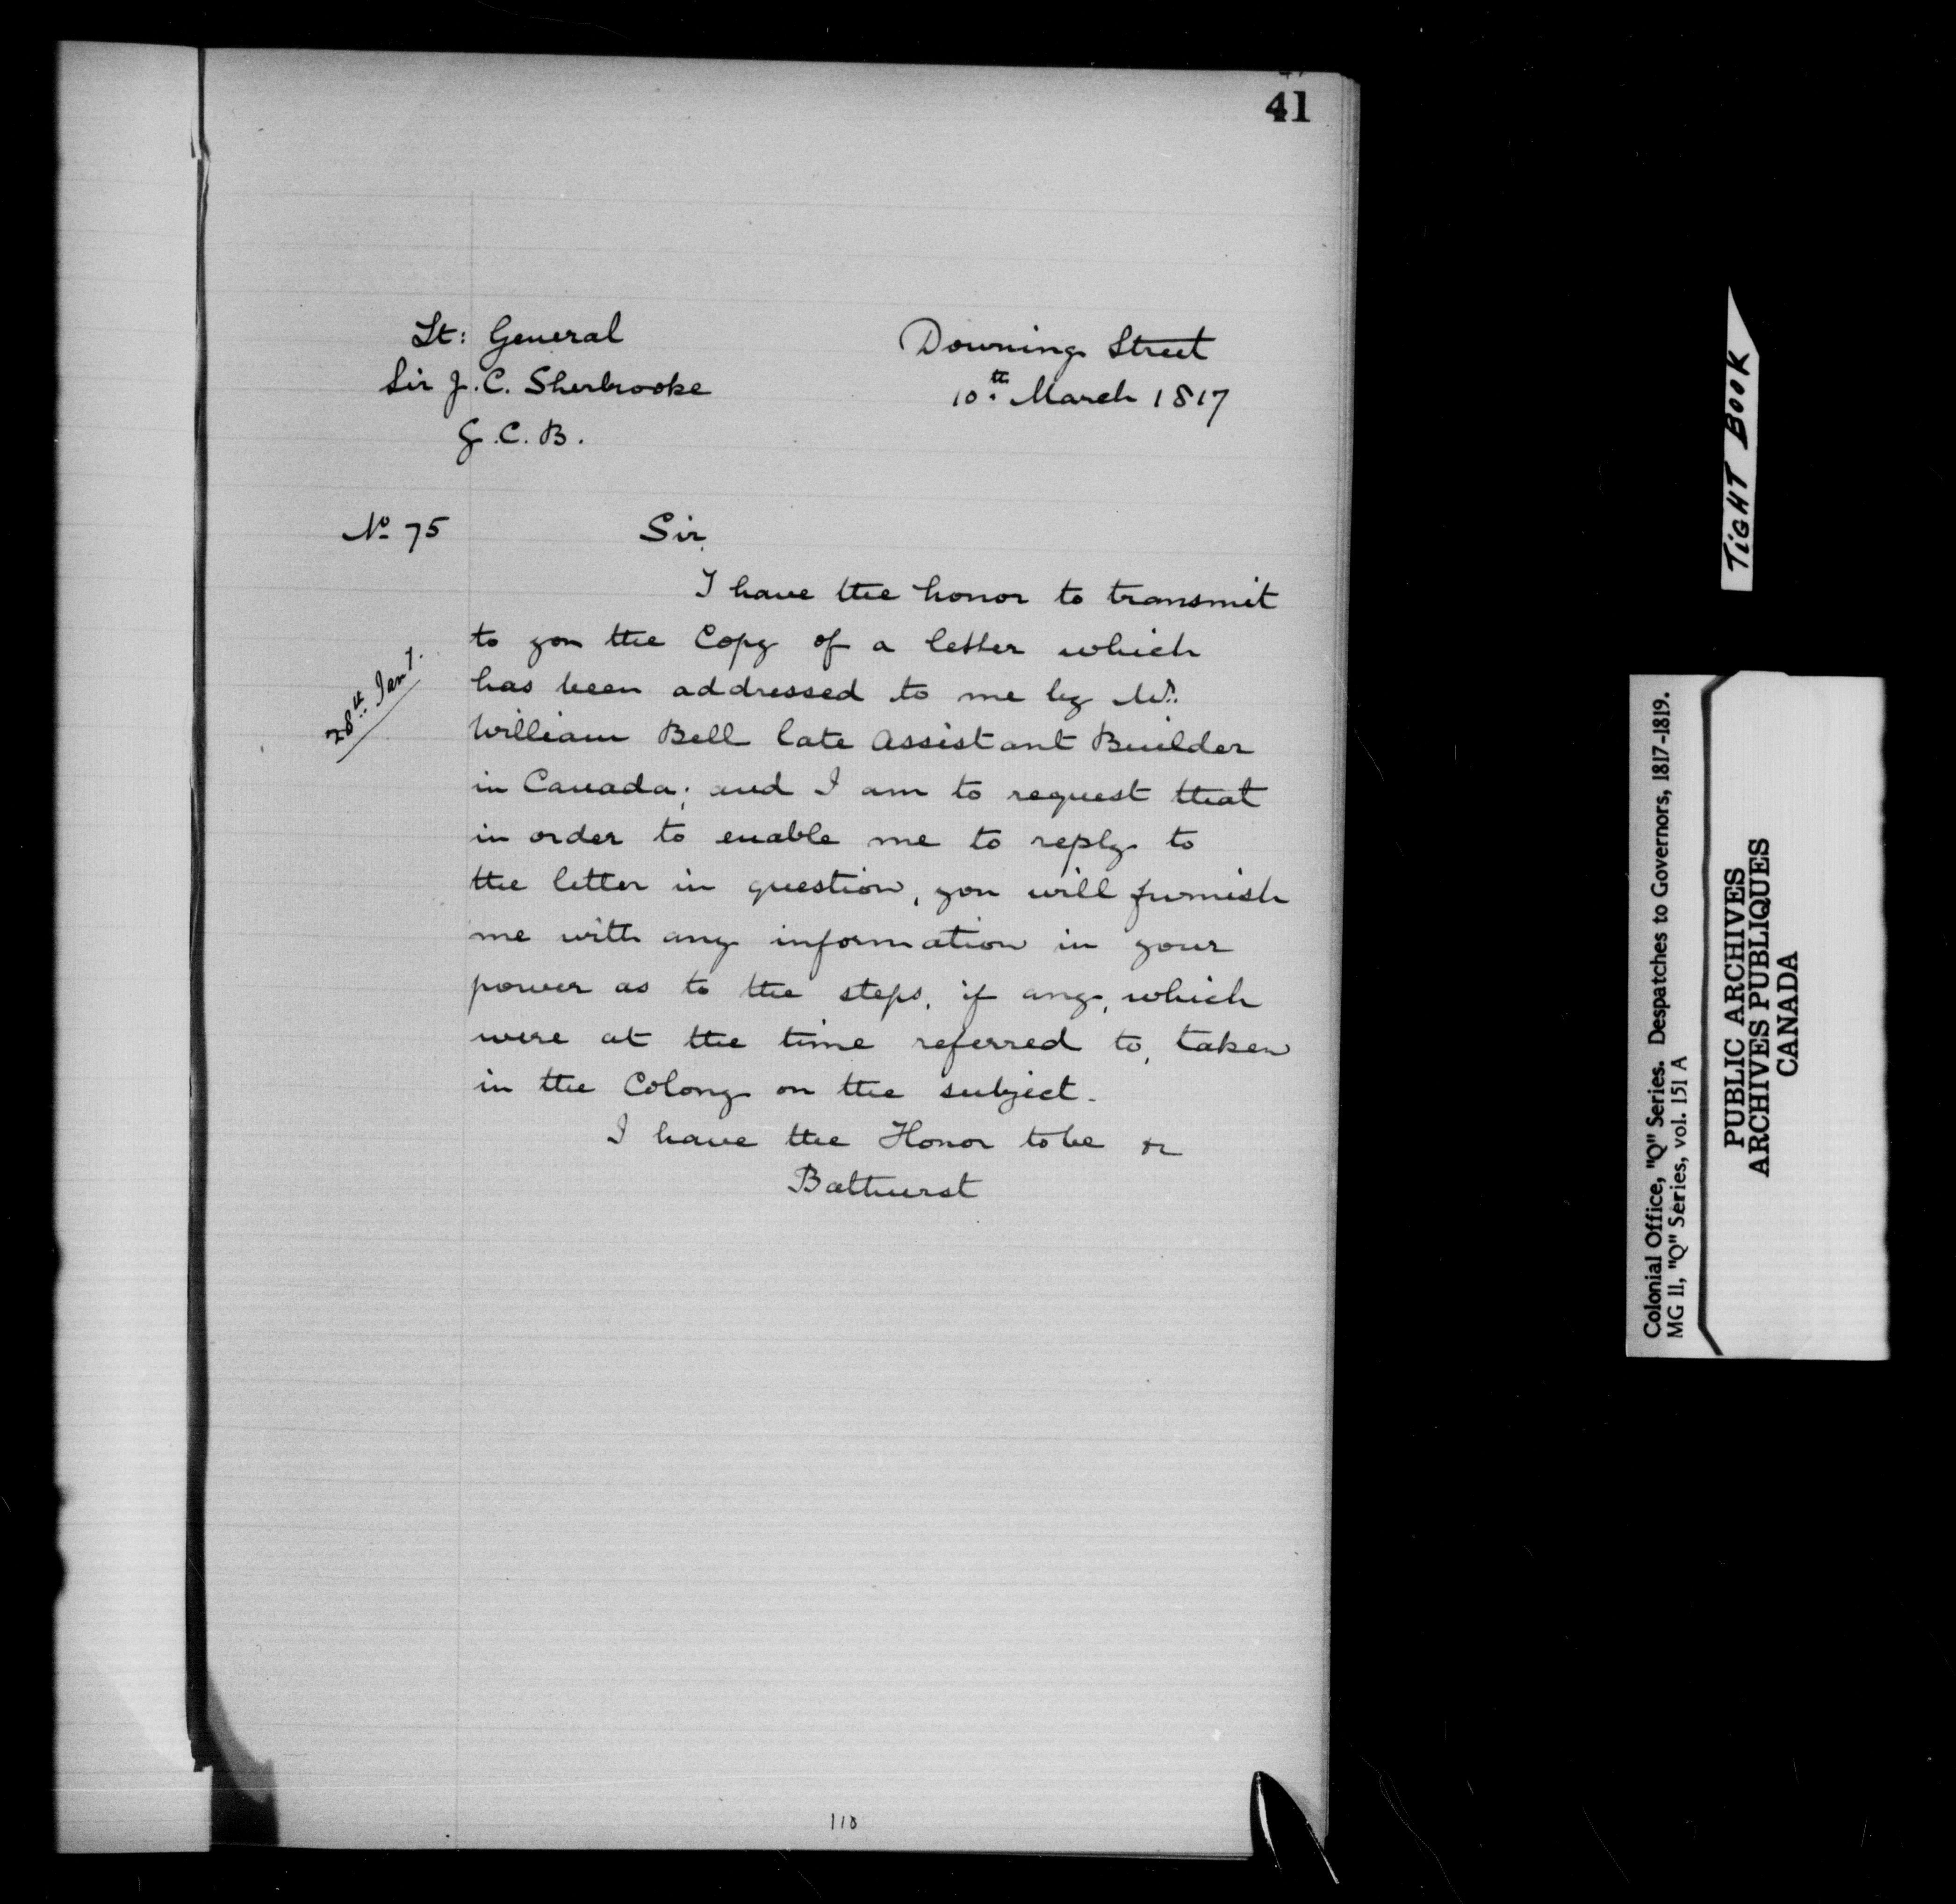 41
Lt: General
Sir J. C. Sherbrooke
G. C. B.
Downing Street
10th. March 1817
No 75
Sir,
I have the honor to transmit
to you the Copy of a letter which
has been addressed to me by Mr.
William Bell late Assistant Builder
in Canada; and I am to request that
in order to enable me to reply to
the letter in question, you will furnish
me with any information in your
power as to the steps, if any, which
were at the time referred to, taken
in the Colony on the subject.
I have the Honor to be &c
Bathurst
28th. Jany.
110
TIGHT BOOK
Colonial Office, "Q" Series. Despatches to Governors, 1817-1819.
MG 11, "Q" Series, vol. 151 A
PUBLIC ARCHIVES
ARCHIVES PUBLIQUES
CANADA